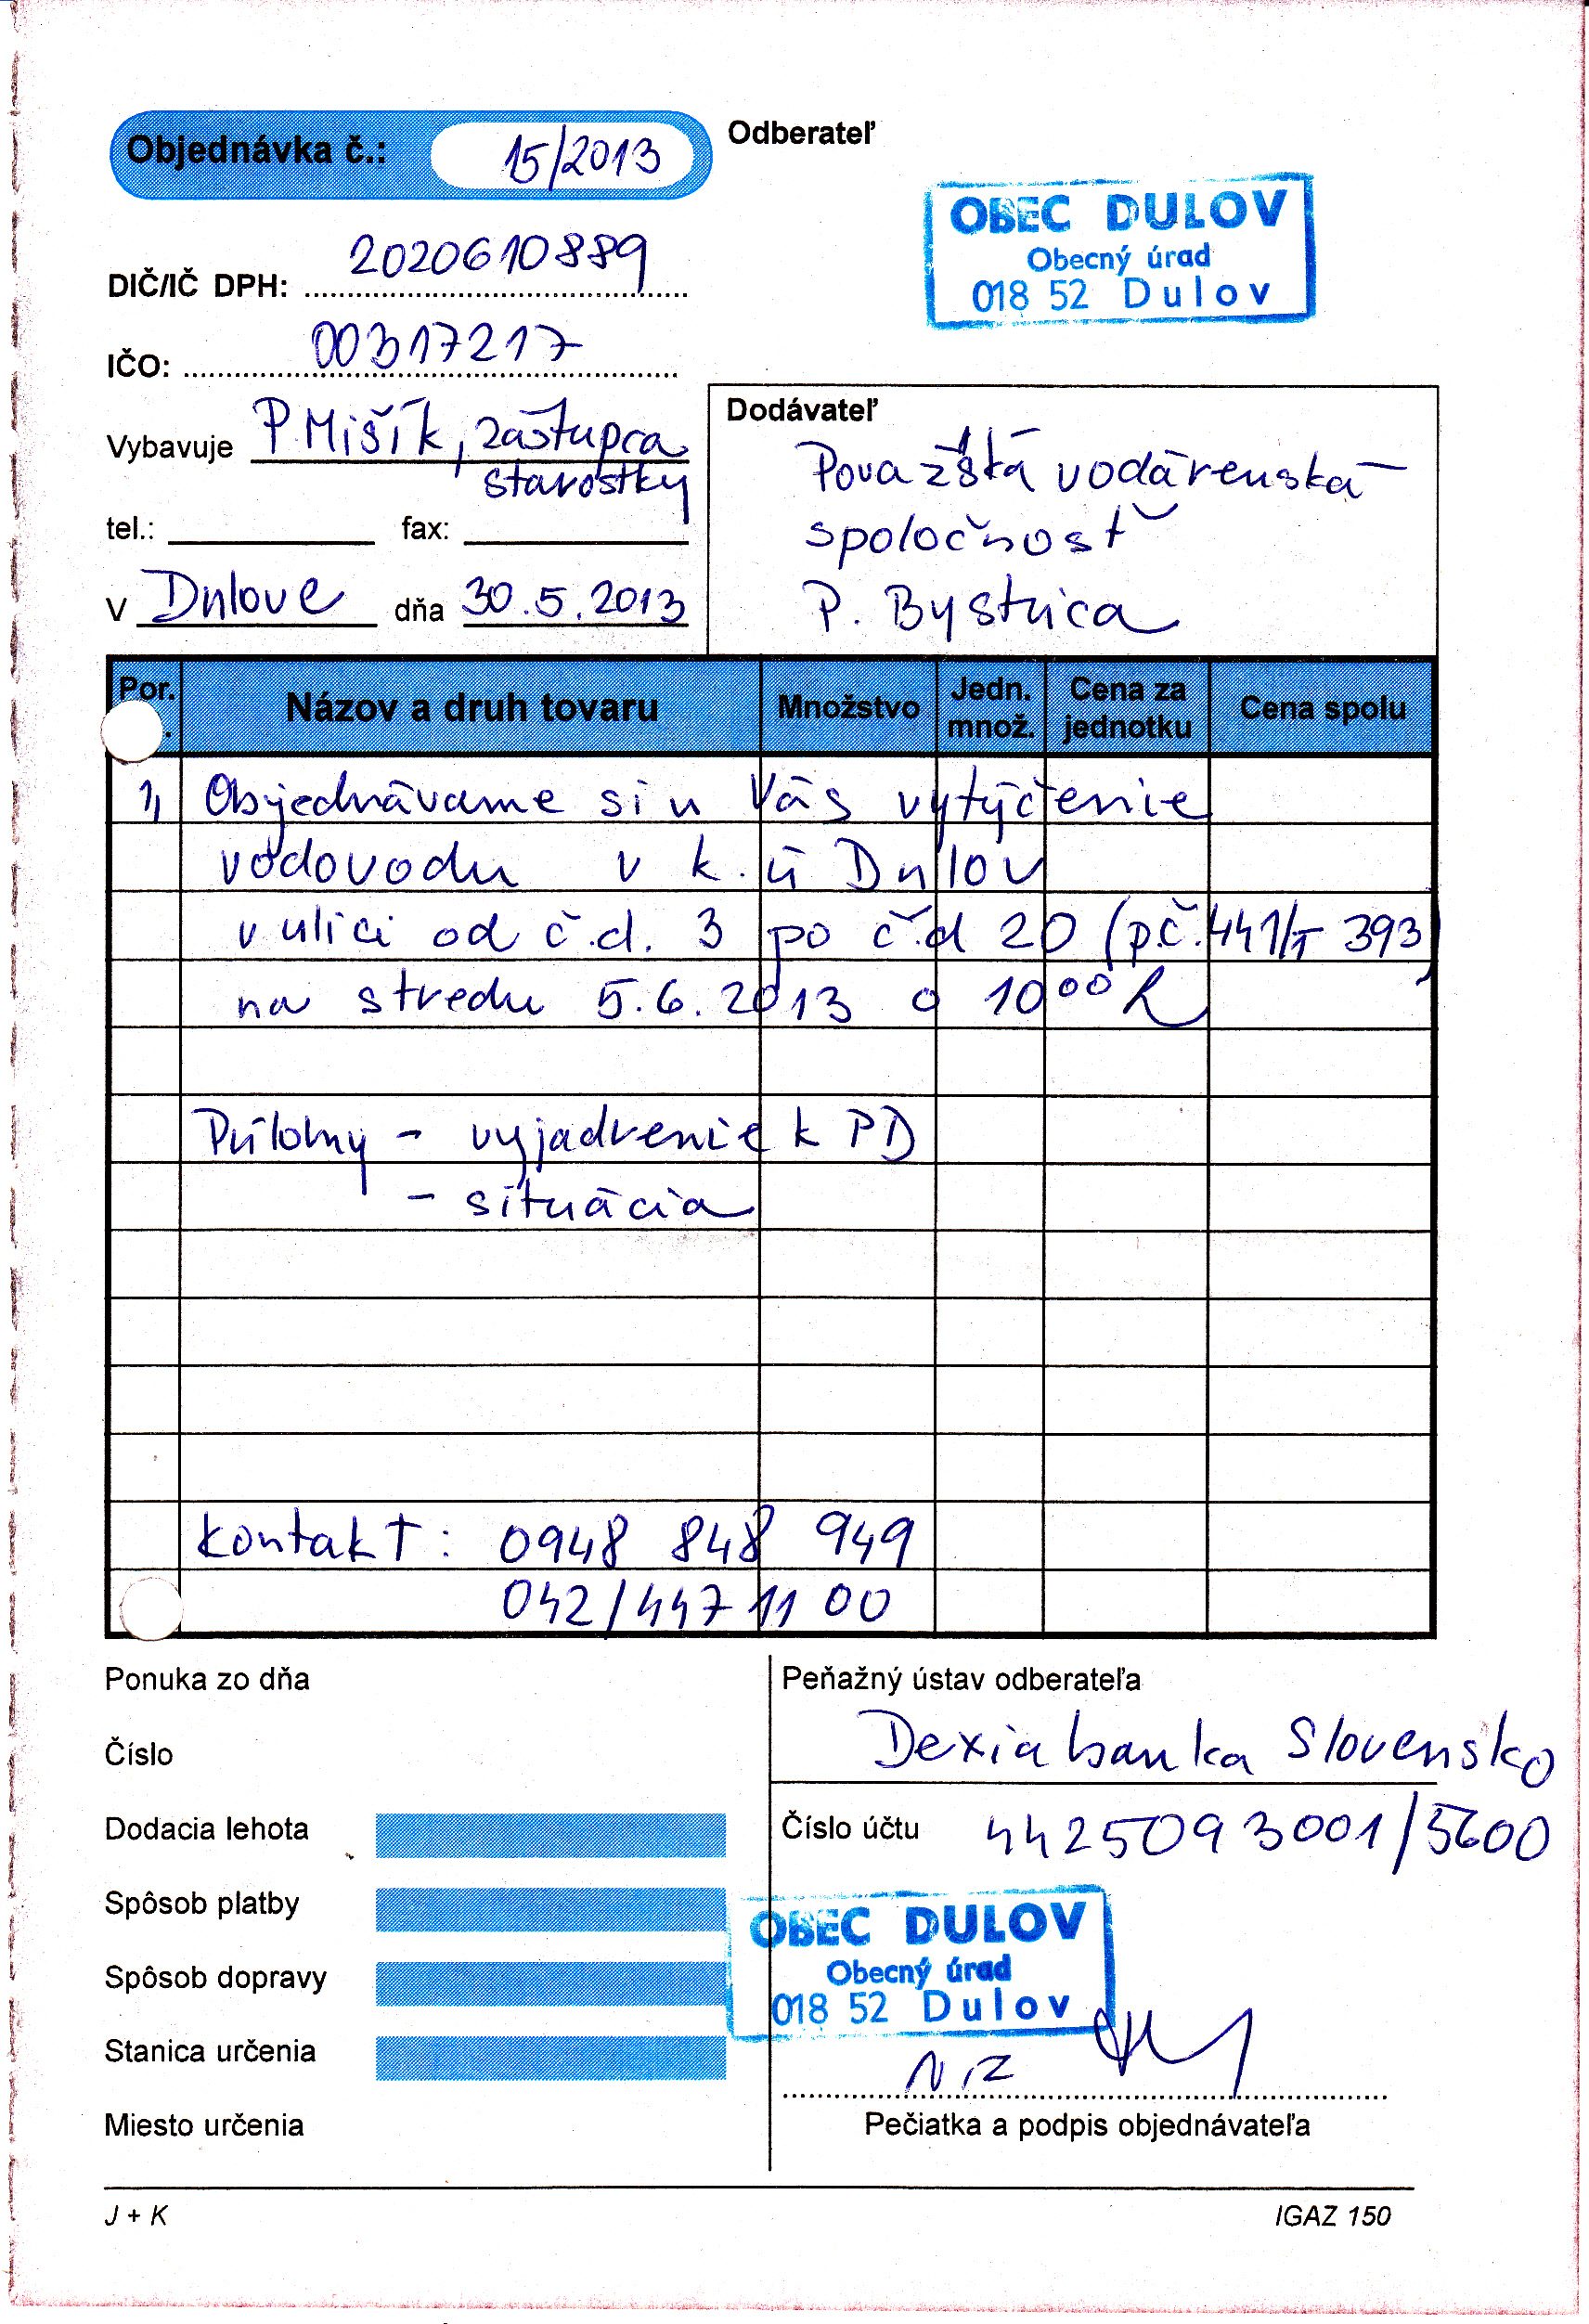 Objednávka č.: 15/2013
Odberateľ
OBEC DULOV
Obecný úrad
018 52 Dulov
DIČ/IČ DPH: 2020610889
IČO: 00317217
Vybavuje P. Mišík, zástupca
starostky
tel.: fax:
V Dulove dňa 30.5.2013
Dodávateľ
Považská vodárenská
spoločnosť
P. Bystrica
Por. Názov a druh tovaru Množstvo Jedn. množ. Cena za jednotku Cena spolu
1, Objednávame si u Vás vytýčenie
vodovodu v k.ú Dulov
v ulici od č.d. 3 po č.d 20 (p.č. 441/1 393)
na stredu 5.6.2013 o 10⁰⁰ h
Prílohy - vyjadrenie k PD
- situácia
Kontakt: 0948 848 949
042/447 11 00
Ponuka zo dňa
Číslo
Dodacia lehota
Spôsob platby
Spôsob dopravy
Stanica určenia
Miesto určenia
Peňažný ústav odberateľa
Dexia banka Slovensko
Číslo účtu 4425093001/5600
OBEC DULOV
Obecný úrad
018 52 Dulov
Pečiatka a podpis objednávateľa
J + K
IGAZ 150